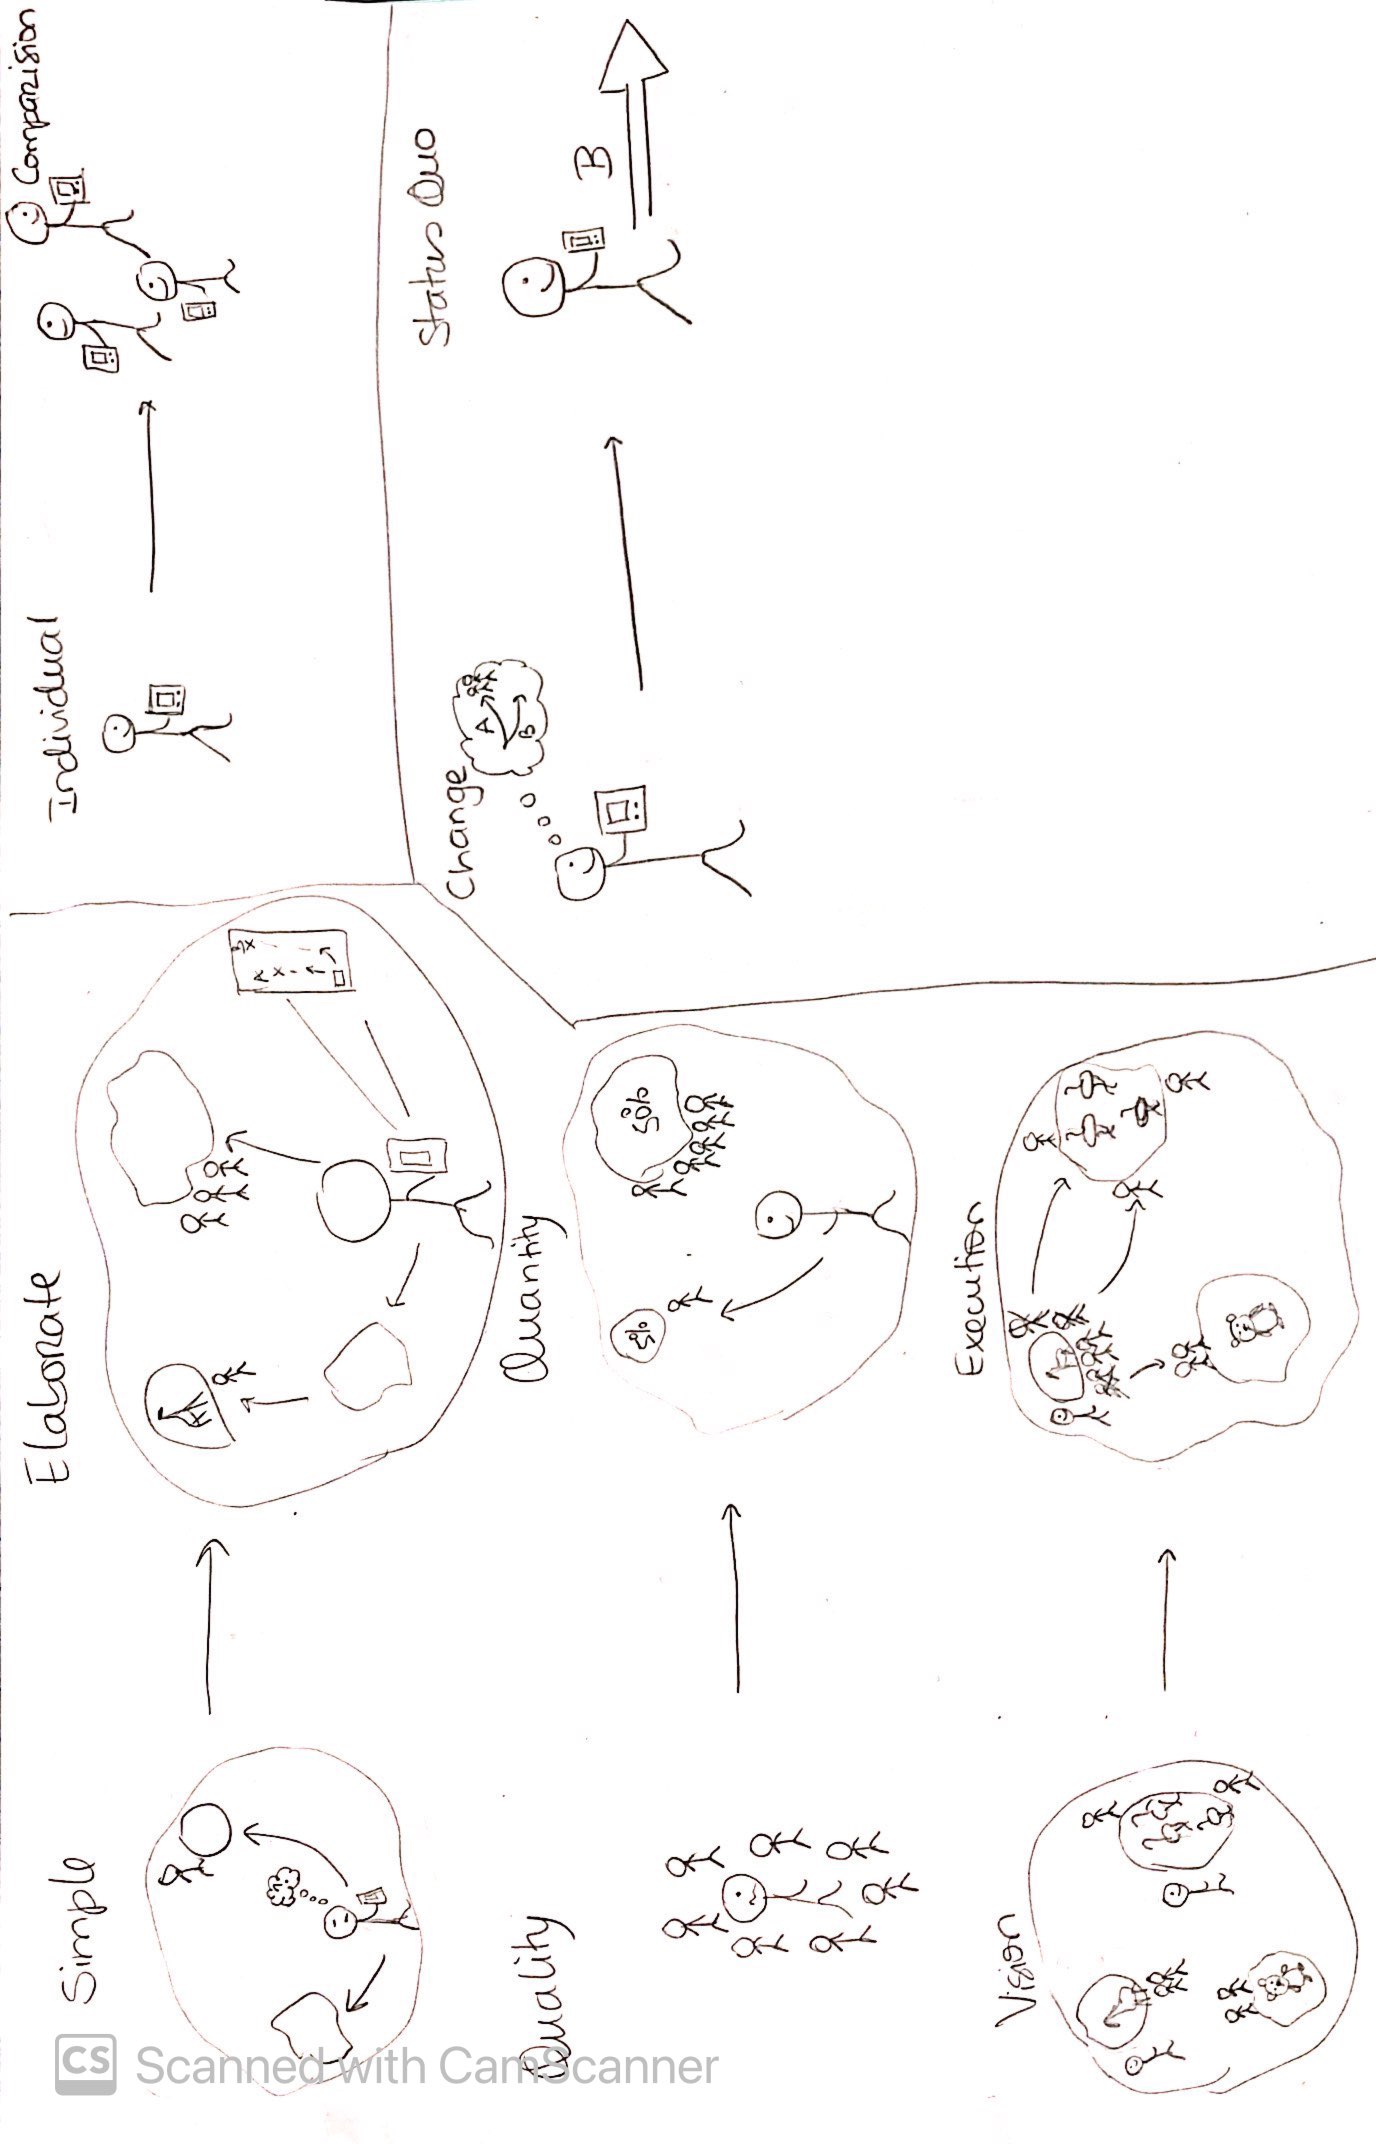 CS Scanned with CamScanner
Simple
Elaborate
?
A
X
B
X
Quality
Quantity
5%
50%
Vision
Execution
Individual
Comparision
Change
A
B
Status Quo
B